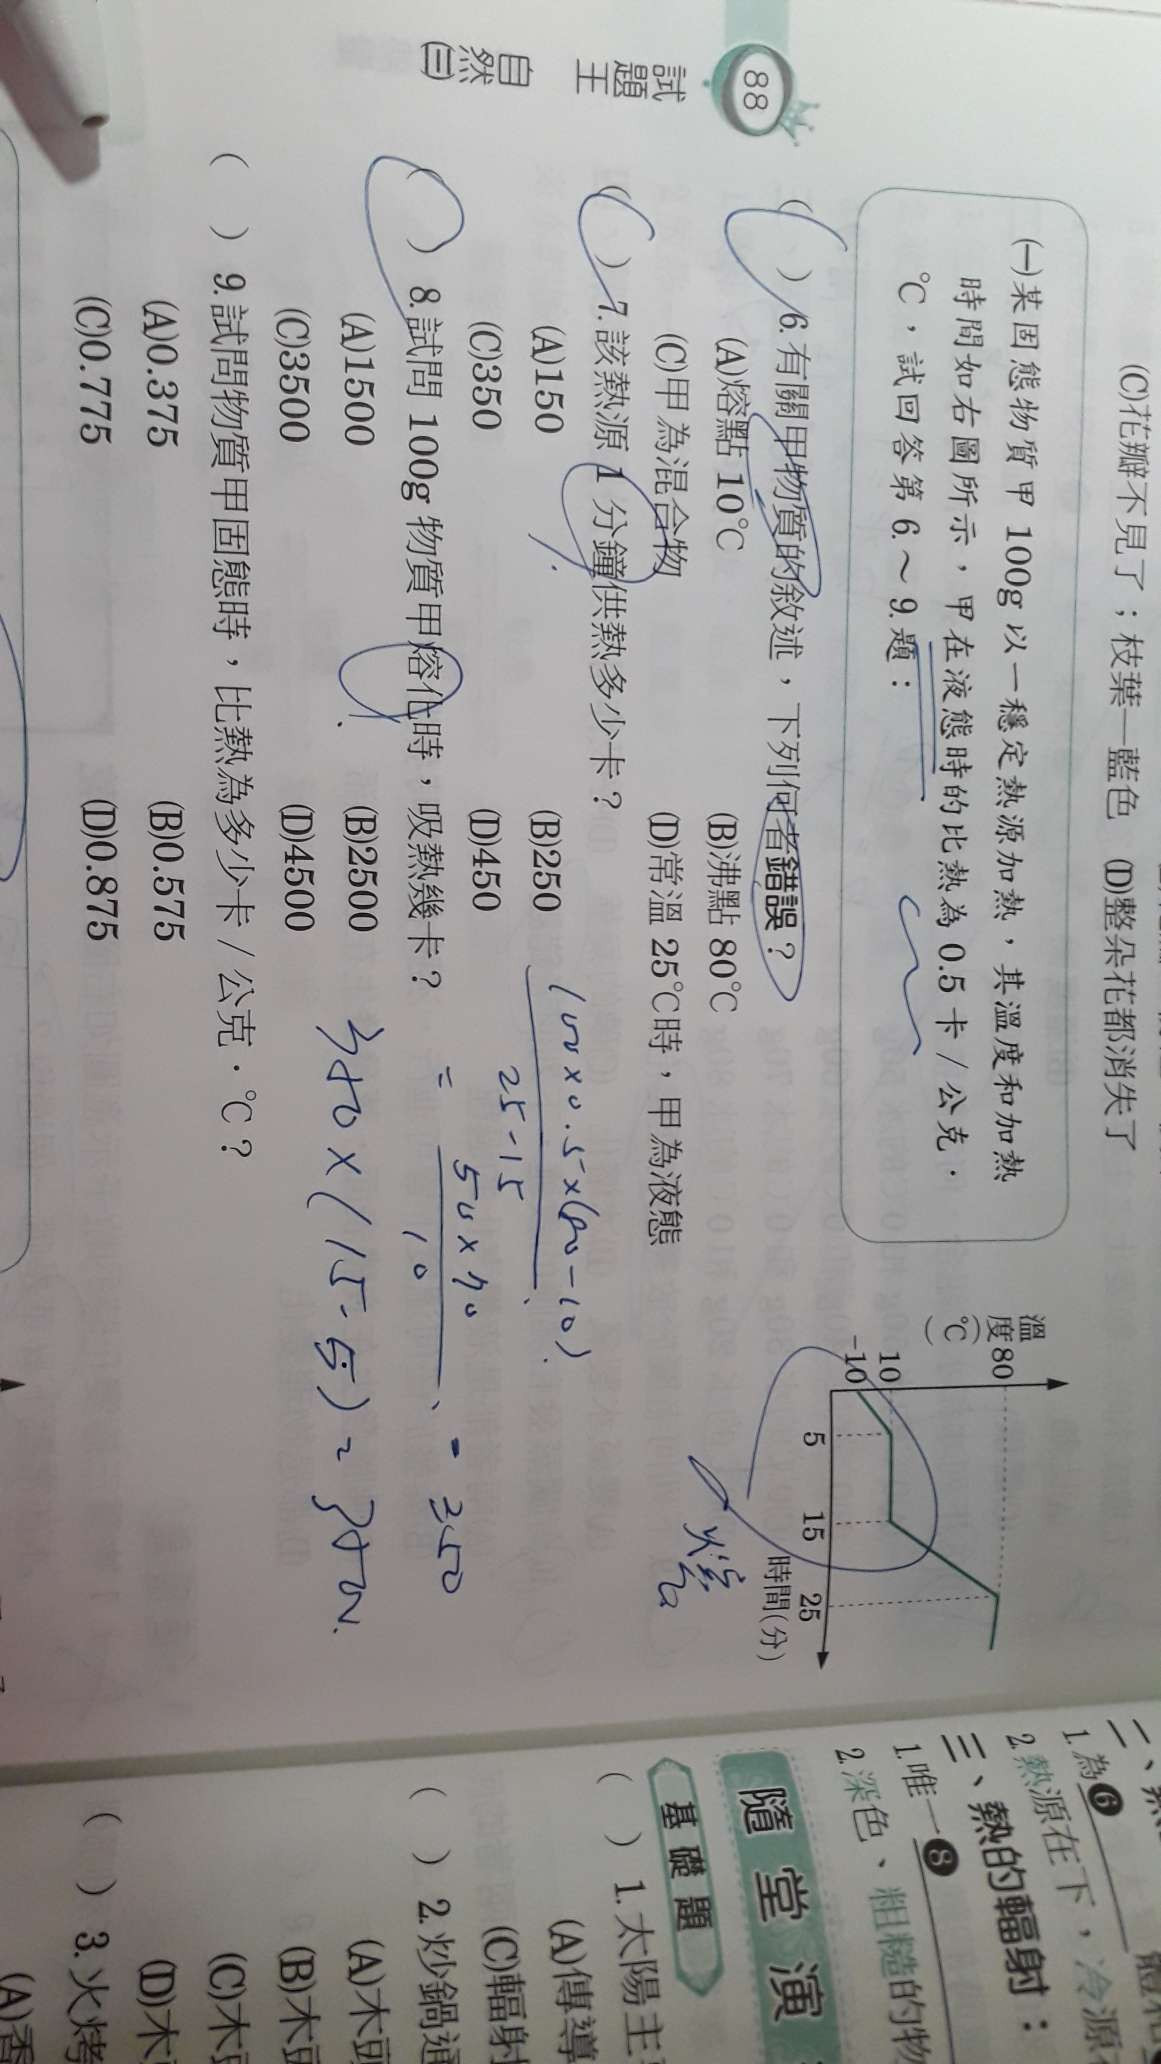 88
試題王 自然(三)
(C)花瓣不見了；枝葉—藍色 (D)整朵花都消失了
(一)某固態物質甲 100g 以一穩定熱源加熱，其溫度和加熱
時間如右圖所示，甲在液態時的比熱為 0.5 卡／公克．
℃，試回答第 6.～9.題：
溫度(℃)
80
10
-10
5
15
25
時間(分)
( ) 6.有關甲物質的敘述，下列何者錯誤？
(A)熔點 10℃ (B)沸點 80℃
(C)甲為混合物 (D)常溫 25℃時，甲為液態
( ) 7.該熱源 1 分鐘供熱多少卡？
(A)150 (B)250
(C)350 (D)450
100×0.5×(80-10)
25-15
= 50×70
10
= 350
( ) 8.試問 100g 物質甲熔化時，吸熱幾卡？
(A)1500 (B)2500
(C)3500 (D)4500
350×(15-5)=3500
( ) 9.試問物質甲固態時，比熱為多少卡／公克．℃？
(A)0.375 (B)0.575
(C)0.775 (D)0.875
1.為6
2.熱源在下，冷源
三、熱的輻射：
1.唯一8
2.深色、粗糙的物
隨堂演
基礎題
( ) 1.太陽主
(A)傳導
(C)輻射
( ) 2.炒鍋通
(A)木
(B)木
(C)木
(D)木
( ) 3.火烤
(A)香